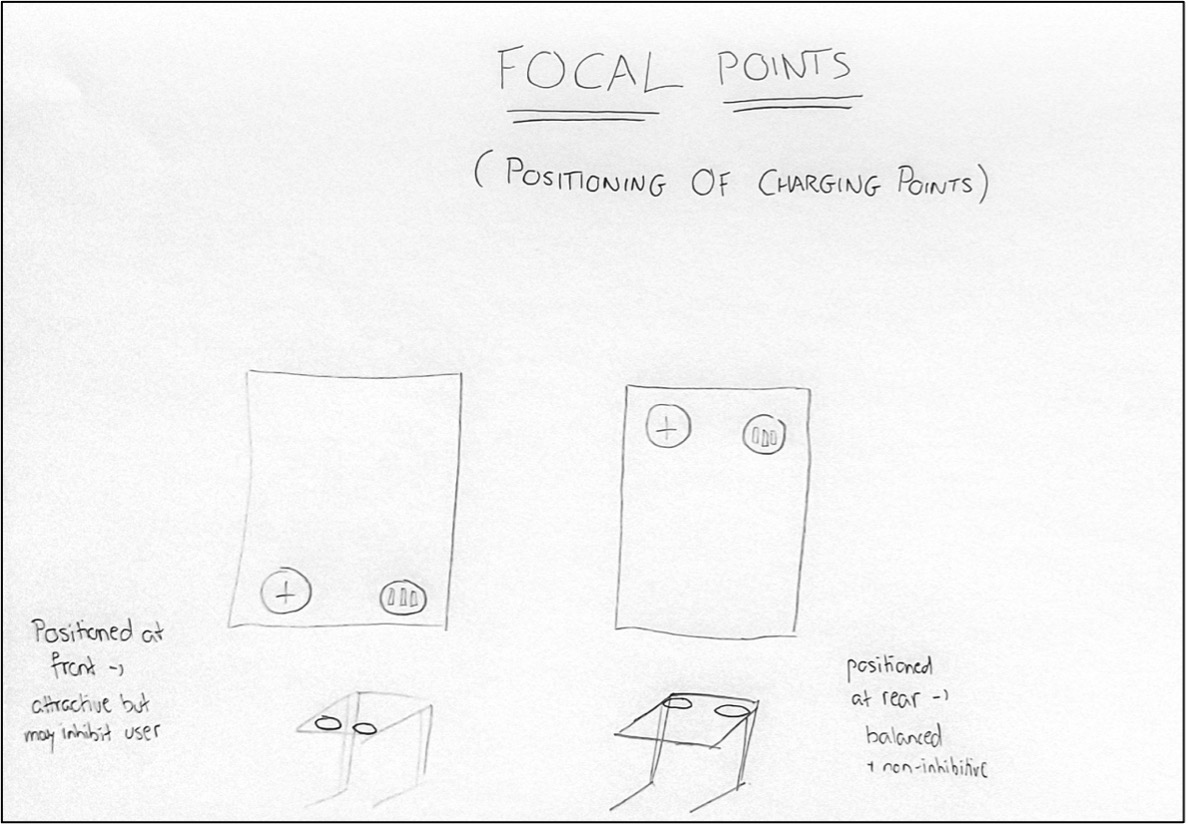 FOCAL POINTS
(POSITIONING OF CHARGING POINTS)
Positioned at
front ->
attractive but
may inhibit user
positioned
at rear ->
balanced
+ non-inhibitive